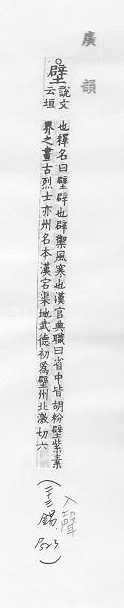 廣韻
壁
說文云垣
也釋名曰壁辟也辟禦風寒也漢官典職曰省中皆胡粉壁紫素
界之畫古烈士亦州名本漢宕渠地武德初爲壁州北激切六
入聲
(二十三錫.